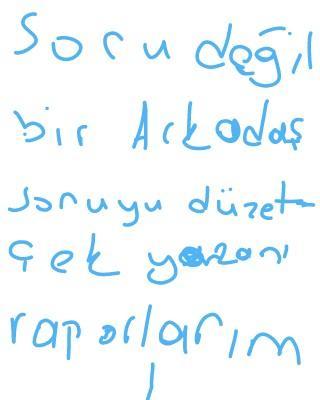 Soru değil
bir Arkadaş
soruyu düzelt
çek yazanı
raporlarım